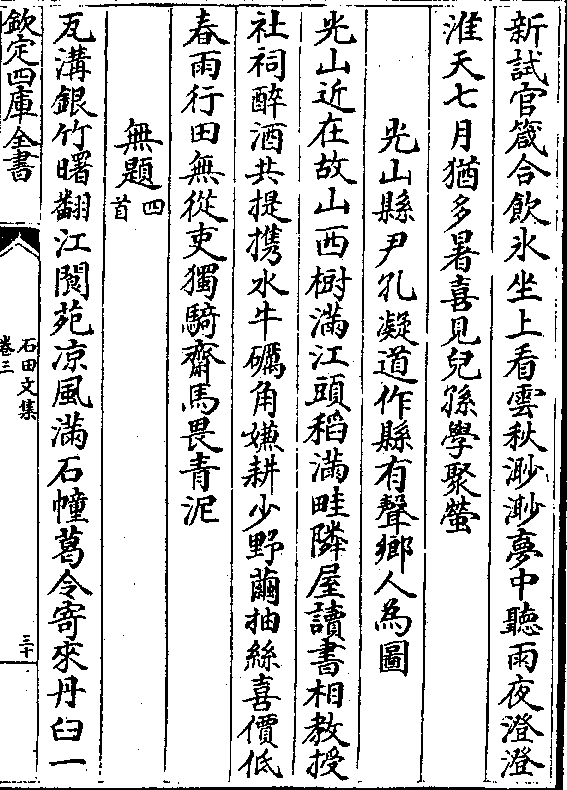 新試官箴合飲氷坐上看雲秋渺渺夢中聽雨夜澄澄
淮天七月猶多暑喜見兒孫學聚螢
光山縣尹孔凝道作縣有聲鄉人為圖
光山近在故山西樹滿江頭稻滿畦隣屋讀書相教授
社祠醉酒共提携水牛礪角嫌耕少野繭抽絲喜價低
春雨行田無從吏獨騎齋馬畏青泥
無題四首
瓦溝銀竹曙翻江閬苑凉風滿石幢葛令寄來丹臼一
欽定四庫全書
石田文集
卷三
三十